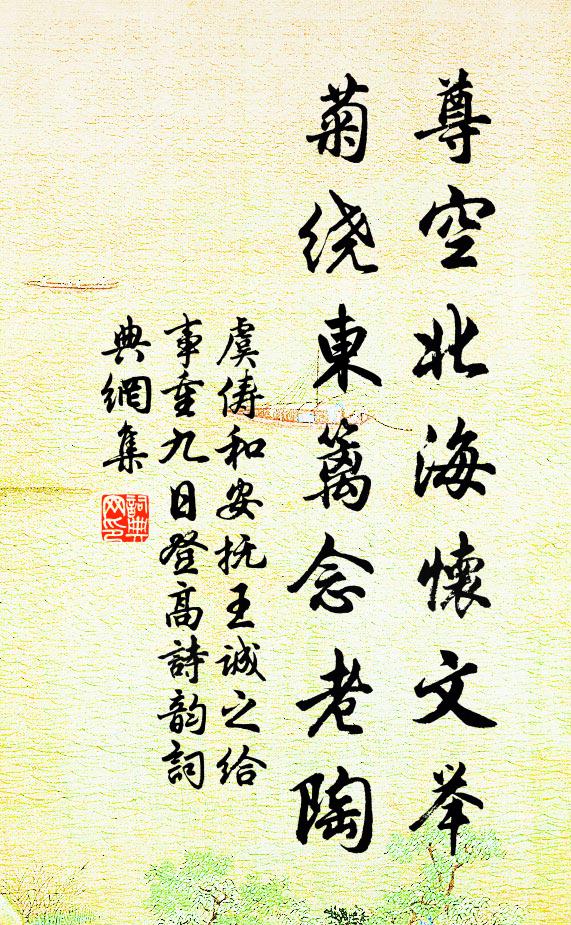 尊空北海懷文举
菊绕東篱念老陶
虞俦和安抚王诚之给
事重九日登高詩韵詞
典網集
詞典网印